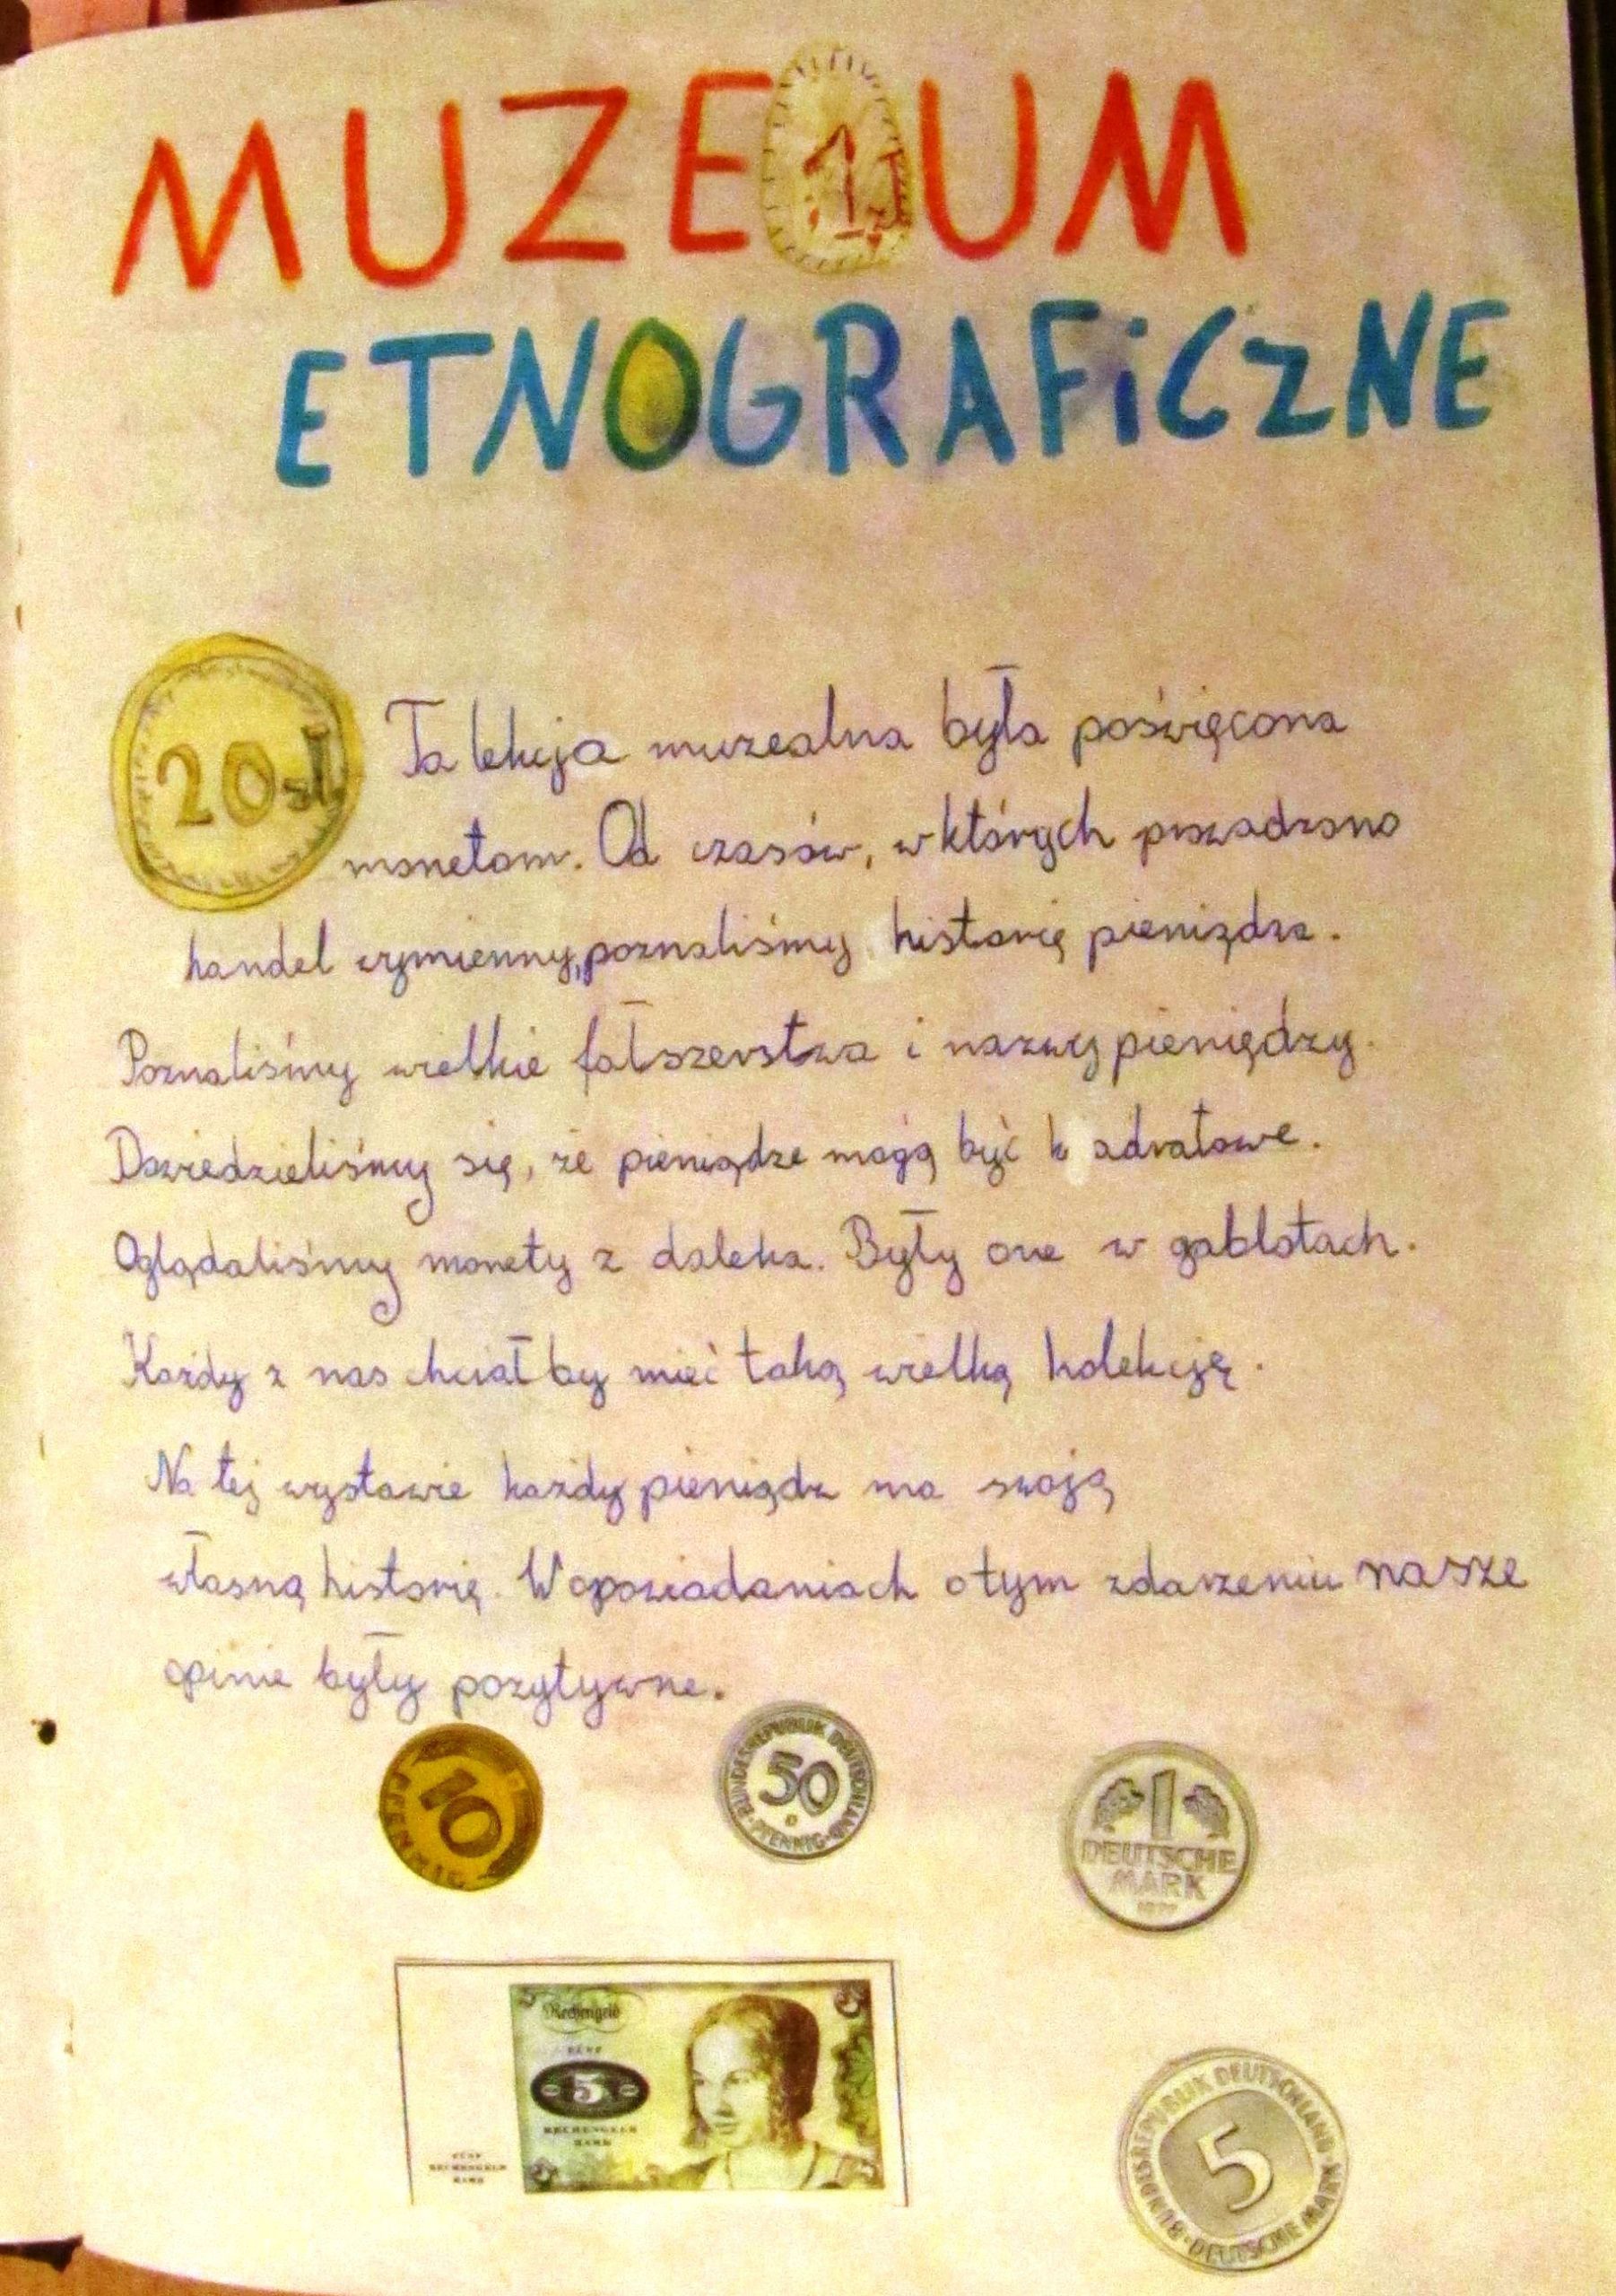 MUZEUM
1 zł
ETNOGRAFiCZNE
20 zł
Ta lekcja muzealna była poświęcona
monetom. Od czasów, w których prowadzono
handel wymienny, poznaliśmy historię pieniądza.
Poznaliśmy wielkie fałszerstwa i nazwy pieniędzy.
Dowiedzieliśmy się, że pieniądze mogą być kwadratowe.
Oglądaliśmy monety z daleka. Były one w gablotach.
Każdy z nas chciał by mieć taką wielką kolekcję.
Na tej wystawie każdy pieniądz ma swoją
własną historię. W opowiadaniach o tym zdarzeniu nasze
opinie były pozytywne.
10
PFENNIG
BUNDESREPUBLIK DEUTSCHLAND
50
PFENNIG
1
DEUTSCHE
MARK
5
5
Rechengeld
FÜNF
5
RECHENGELD
MARK
FÜNF
RECHENGELD
MARK
BUNDESREPUBLIK DEUTSCHLAND
5
DEUTSCHE MARK